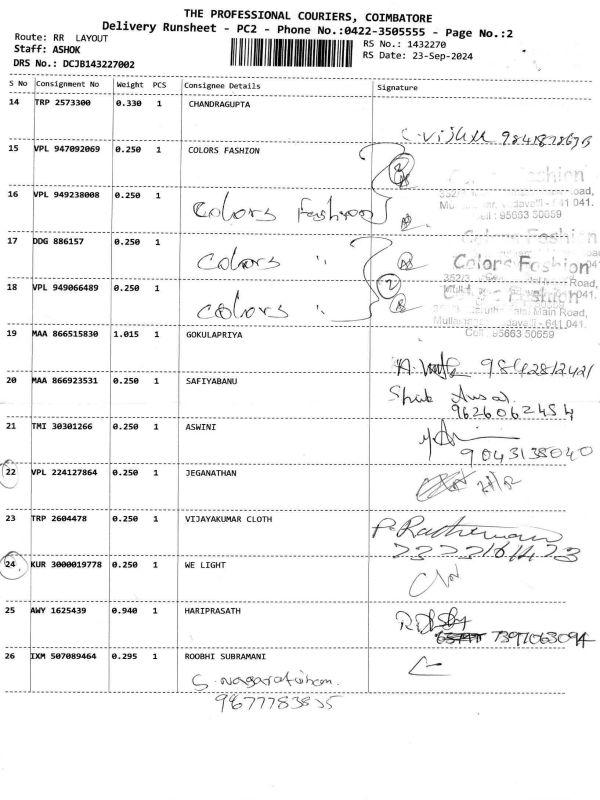 THE PROFESSIONAL COURIERS, COIMBATORE
Delivery Runsheet - PC2 - Phone No.:0422-3505555 - Page No.:2
Route: RR LAYOUT
RS No.: 1432270
Staff: ASHOK
RS Date: 23-Sep-2024
DRS No.: DCJB143227002
S No Consignment No Weight PCS Consignee Details Signature
14 TRP 2573300 0.330 1 CHANDRAGUPTA
15 VPL 947092069 0.250 1 COLORS FASHION
16 VPL 949238008 0.250 1
Colors Fashion
Cell : 95663 50659
17 DDG 886157 0.250 1
Colors "
Colors Fashion
18 VPL 949066489 0.250 1
Colors "
2
Main Road,
641 041.
Cell : 95663 50659
19 MAA 866515830 1.015 1 GOKULAPRIYA
9842812421
20 MAA 866923531 0.250 1 SAFIYABANU
9626062454
21 TMI 30301266 0.250 1 ASWINI
9043138040
22 VPL 224127864 0.250 1 JEGANATHAN
23 TRP 2604478 0.250 1 VIJAYAKUMAR CLOTH
24 KUR 3000019778 0.250 1 WE LIGHT
25 AWY 1625439 0.940 1 HARIPRASATH
7397063094
26 IXM 507089464 0.295 1 ROOBHI SUBRAMANI